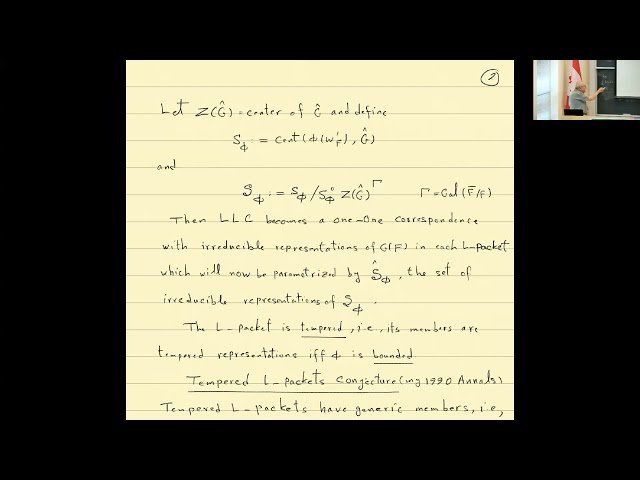 2
Let Z(Ĝ) = center of Ĝ and define
S_φ := Cent(φ(W'_F), Ĝ)
and
𝒮_φ := S_φ / S_φ° Z(Ĝ)^Γ Γ = Gal(F̄/F)
Then LLC becomes a one-one correspondence
with irreducible representations of G(F) in each L-packet
which will now be parametrized by 𝒮̂_φ, the set of
irreducible representations of 𝒮_φ.
The L-packet is tempered, i.e., its members are
tempered representations iff φ is bounded.
Tempered L-packets Conjecture (my 1990 Annals)
Tempered L-packets have generic members, i.e,